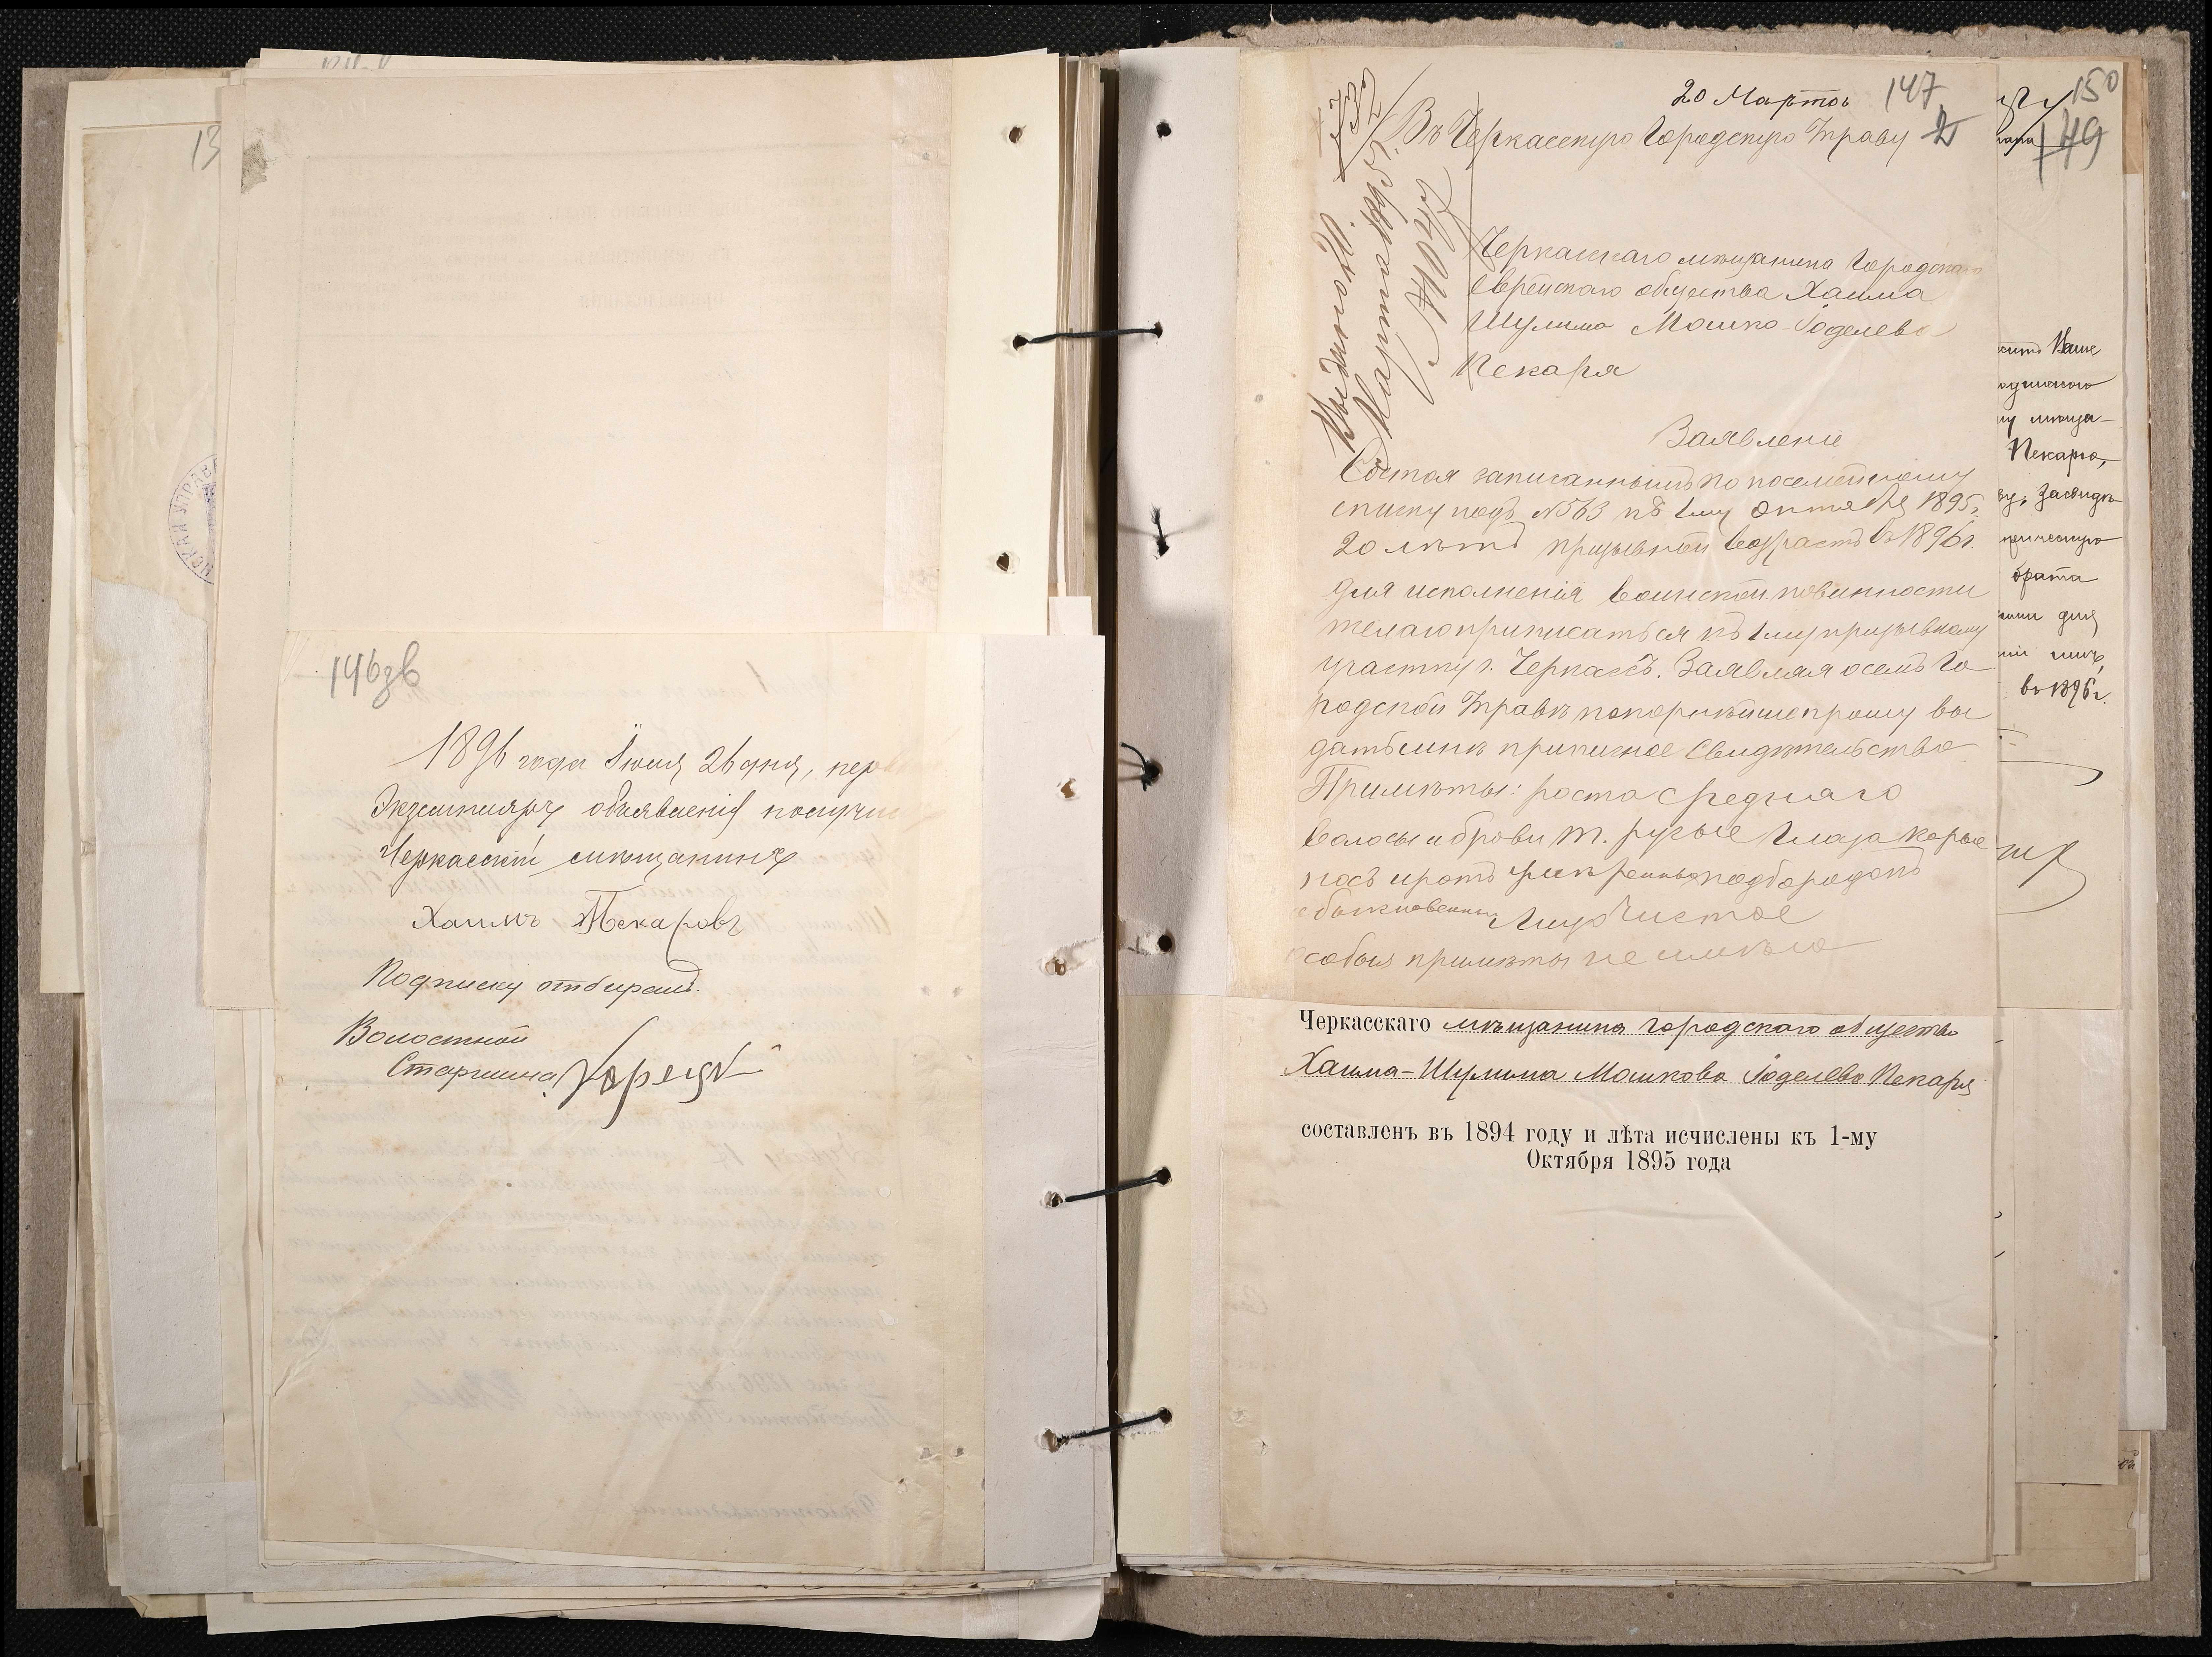 146зв
1896 года Іюня 26 дня,
Экземпляръ объявленія
Черкасскій мѣщанинъ
Хаимъ Пекаровъ
Подписку отбиралъ
Волостной
Старшина
20 Марта 147
Въ Черкасскую Городскую Управу
732
Марта
Черкасскаго мѣщанина Городскаго
Еврейскаго общества Хаима
Шулима Мошко-Іоделева
Пекаря
Заявленіе
Состоя записаннымъ по посемейному
списку подъ №563 къ 1му Октября 1895г.
20 лѣтъ призывной возрастъ въ 1896г.
для исполненія воинской повинности
желаю приписаться къ 1му призывному
участку г. Черкассъ. Заявляя о семъ Го
родской Управѣ покорнѣйше прошу вы
дать мнѣ приписное Свидѣтельство
Примѣты: роста средняго
волосы и брови т. русые глаза карые
носъ и ротъ умѣренные подбородокъ
обыкновенный Лицо Чистое
особыя примѣты не имѣю
Черкасскаго мѣщанина городскаго общества
Хаима-Шулима Мошкова Іоделева Пекаря
составленъ въ 1894 году и лѣта исчислены къ 1-му
Октября 1895 года
150
149
Ваше
Пекарю,
брата
для
въ 1896г.